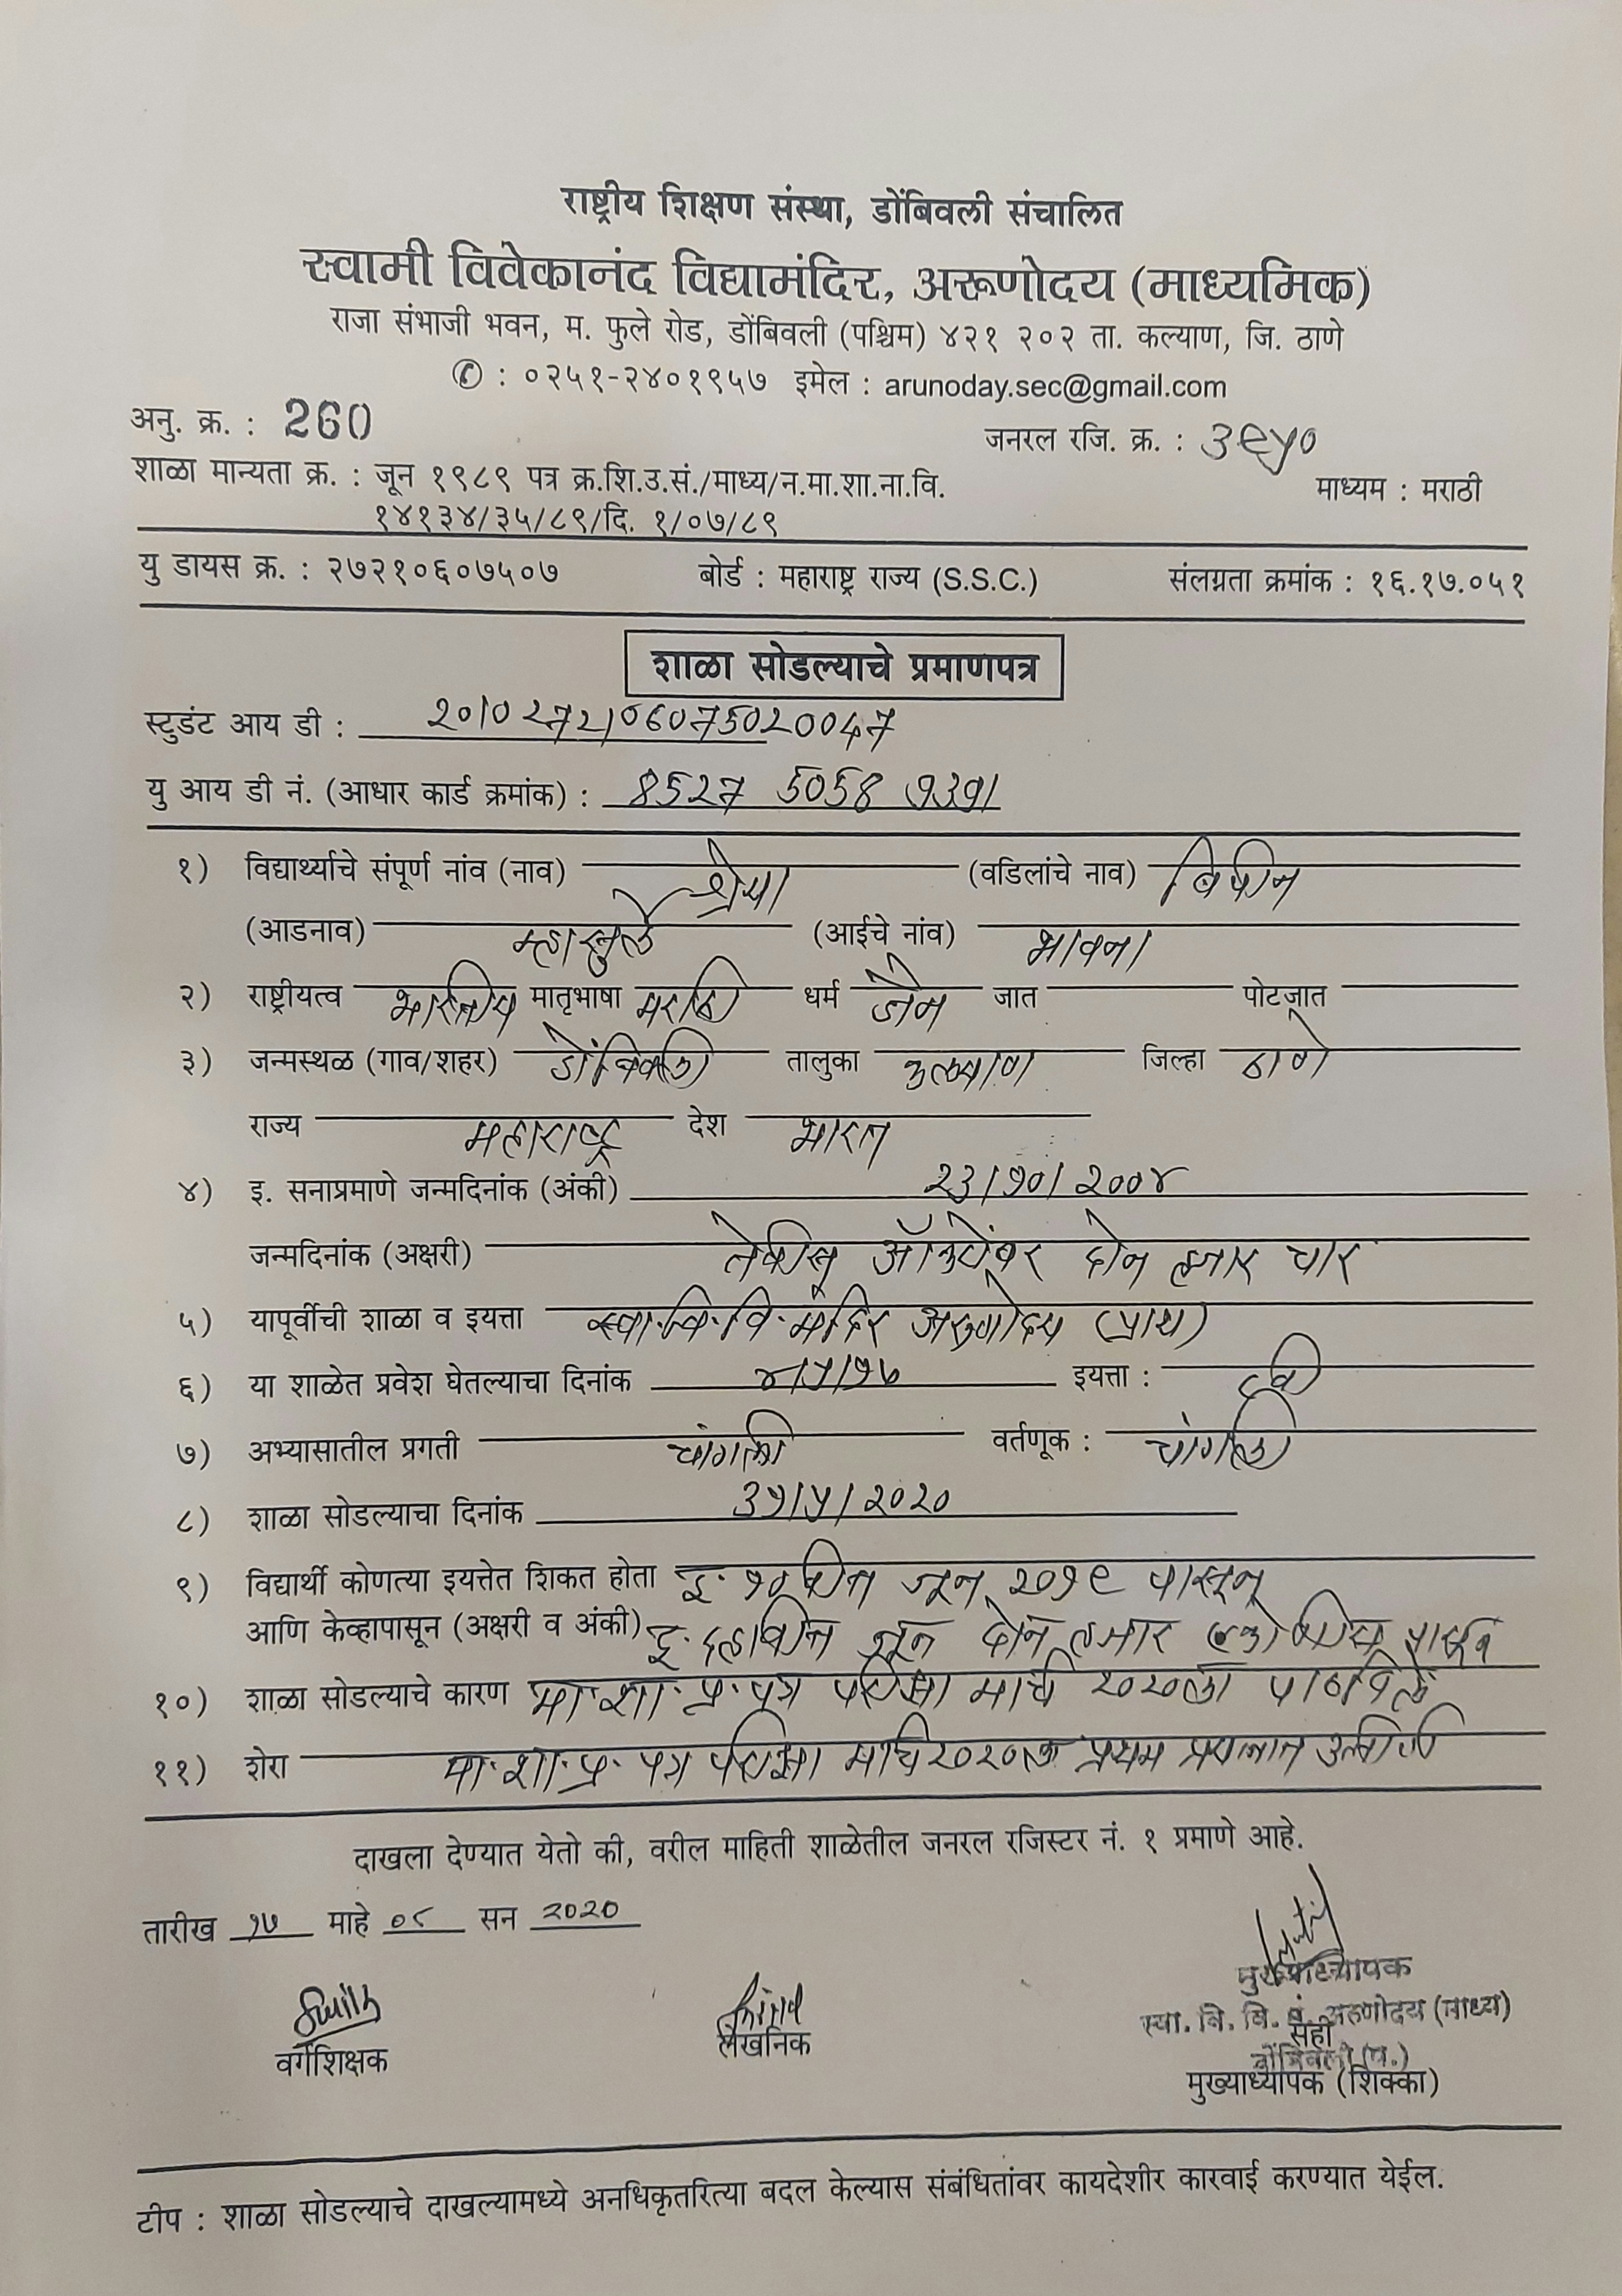 राष्ट्रीय शिक्षण संस्था, डोंबिवली संचालित
स्वामी विवेकानंद विद्यामंदिर, अरूणोदय (माध्यमिक)
राजा संभाजी भवन, म. फुले रोड, डोंबिवली (पश्चिम) ४२१ २०२ ता. कल्याण, जि. ठाणे
✆ : ०२५१-२४०१९५७ इमेल : arunoday.sec@gmail.com
अनु. क्र. : 260 जनरल रजि. क्र. : ३९५०
शाळा मान्यता क्र. : जून १९८९ पत्र क्र.शि.उ.सं./माध्य/न.मा.शा.ना.वि. माध्यम : मराठी
१४१३४/३५/८९/दि. १/०७/८९
यु डायस क्र. : २७२१०६०७५०७ बोर्ड : महाराष्ट्र राज्य (S.S.C.) संलग्नता क्रमांक : १६.१७.०५१
शाळा सोडल्याचे प्रमाणपत्र
स्टुडंट आय डी :
यु आय डी नं. (आधार कार्ड क्रमांक) : 8527 5058
१) विद्यार्थ्याचे संपूर्ण नांव (नाव) श्रेया (वडिलांचे नाव) बिपीन
(आडनाव) (आईचे नांव) भावना
२) राष्ट्रीयत्व भारतीय मातृभाषा मराठी धर्म जैन जात पोटजात
३) जन्मस्थळ (गाव/शहर) डोंबिवली तालुका कल्याण जिल्हा ठाणे
राज्य महाराष्ट्र देश भारत
४) इ. सनाप्रमाणे जन्मदिनांक (अंकी) २३/१०/२००४
जन्मदिनांक (अक्षरी) तेवीस ऑक्टोंबर दोन हजार चार
५) यापूर्वीची शाळा व इयत्ता स्वा.वि.वि.मंदिर अरुणोदय (प्राथ)
६) या शाळेत प्रवेश घेतल्याचा दिनांक इयत्ता : ८वी
७) अभ्यासातील प्रगती चांगली वर्तणूक : चांगली
८) शाळा सोडल्याचा दिनांक ३१/५/२०२०
९) विद्यार्थी कोणत्या इयत्तेत शिकत होता इ. १० वीत जून २०१९ पासून
आणि केव्हापासून (अक्षरी व अंकी) इ. दहावीत जून दोन हजार एकोणीस पासून
१०) शाळा सोडल्याचे कारण मा.शा.प्र.पत्र परीक्षा मार्च २०२०ला पाठविले
११) शेरा मा.शा.प्र.पत्र परीक्षा मार्च २०२०ला प्रथम प्रयत्नात उत्तीर्ण
दाखला देण्यात येतो की, वरील माहिती शाळेतील जनरल रजिस्टर नं. १ प्रमाणे आहे.
तारीख १७ माहे ०८ सन २०२०
मुख्याध्यापक
स्वा. वि. वि. मं. अरुणोदय (माध्य)
सही
डोंबिवली (प.)
वर्गशिक्षक लेखनिक मुख्याध्यापक (शिक्का)
टीप : शाळा सोडल्याचे दाखल्यामध्ये अनधिकृतरित्या बदल केल्यास संबंधितांवर कायदेशीर कारवाई करण्यात येईल.